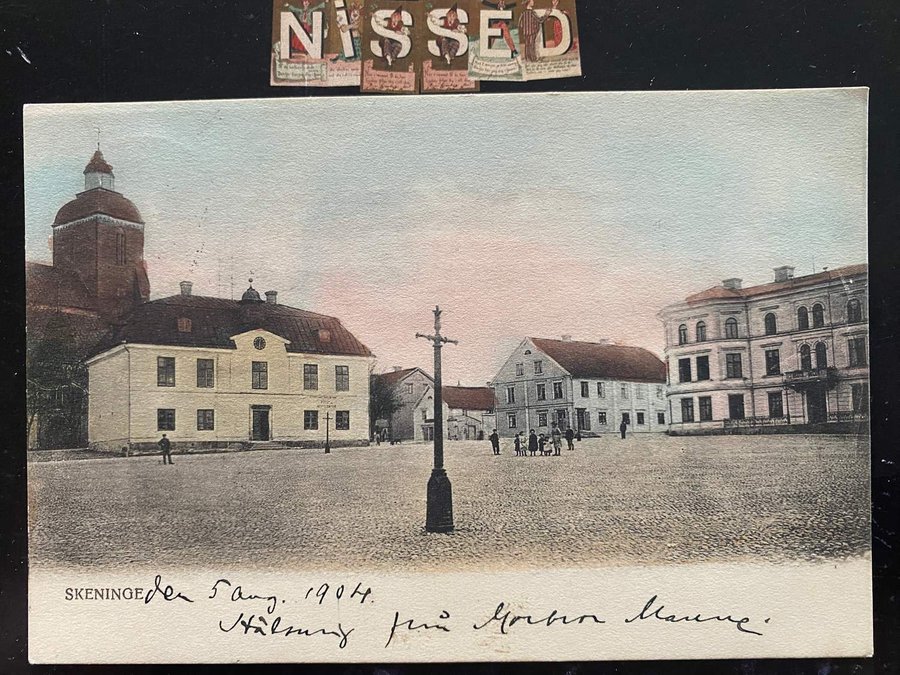 NiSSED
SKENINGE den 5 aug. 1904.
Hälsning från Morbror